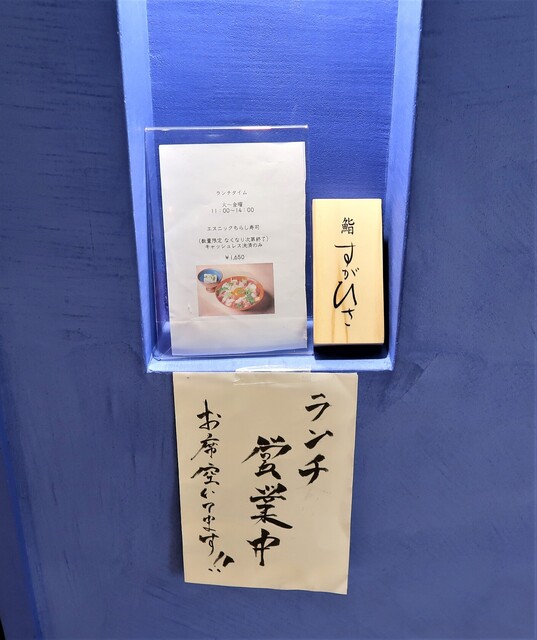 ランチタイム
火～金曜
11：00～14：00
エスニックちらし寿司
(数量限定 なくなり次第終了)
キャッシュレス決済のみ
¥1,650
鮨 すがひさ
ランチ
営業中
お席空いてます!!